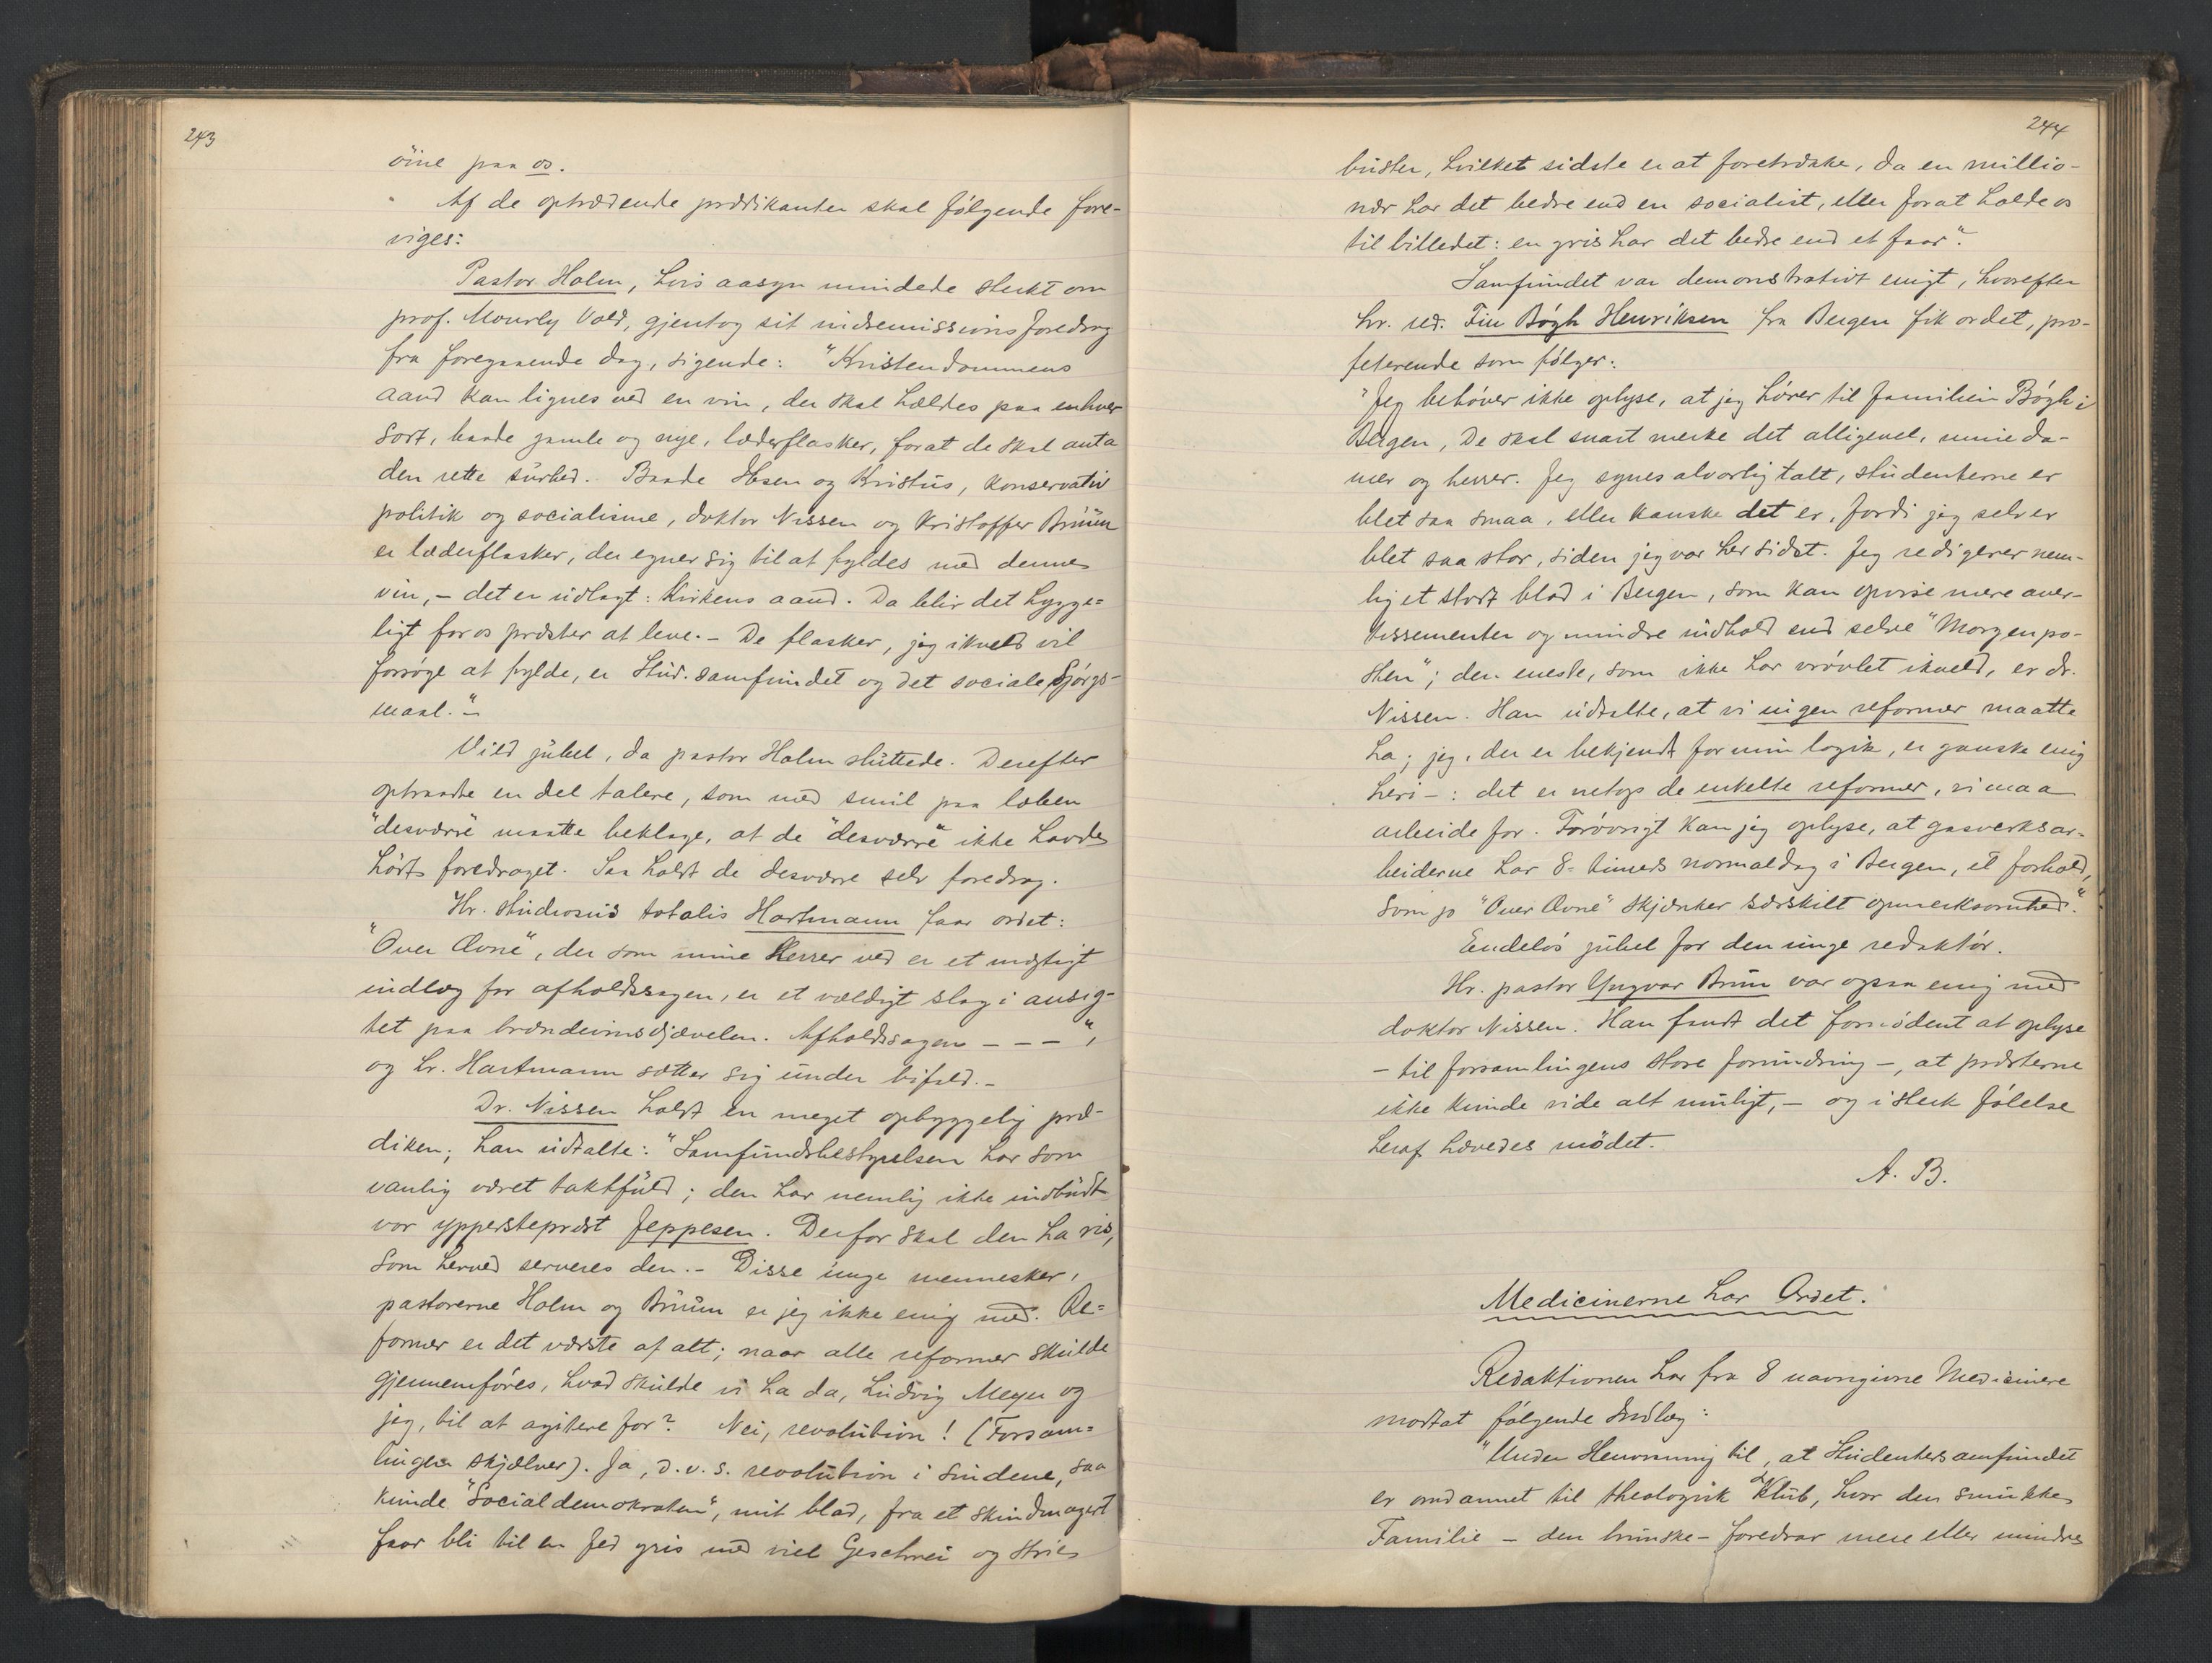 243
öine paa os.
Af de optrædende prædikanter skal følgende fore-
viges:
Pastor Holm, hvis aasyn mindede sterkt om
prof. Mourly Vold, gjentog sit indremissionsforedrag
fra foregaaende dag, sigende: "Kristendommens
aand kan lignes ved en vin, der skal hældes paa enhver
sort, baade gamle og nye, læderflasker, forat de skal anta
den rette surhed. Baade Ibsen og Kristus, konservativ
politik og socialisme, doktor Nissen og Kristoffer Bruun
er læderflasker, der egner sig til at fyldes med denne
vin, – det er udlagt: Kirkens aand. Da blir det hygge=
ligt for os præster at leve. – De flasker, jeg ikveld vil
forsøge at fylde, er Stud. samfundet og det sociale Spørgs-
maal." –
Vild jubel, da pastor Holm sluttede. Derefter
optraadte en del talere, som med smil paa læben
"desværre" maatte beklage, at de "desværre" ikke havde
hørt foredraget. Saa holdt de desværre selv foredrag.
Hr. studiosus totalis Hartmann faar ordet:
"Over Ævne", der som mine Herrer ved er et mægtigt
indlæg for afholdssagen, er et vældigt slag i ansig-
tet paa brændevinsdjævelen. Afholdssagen – – – ",
og hr. Hartmann sætter sig under bifald. –
Dr. Nissen holdt en meget opbyggelig præ-
diken; han udtalte: "Samfundsbestyrelsen har som
vanlig været taktfuld; den har nemlig ikke indbudt
vor ypperstepræst Jeppesen. Derfor skal den ha ris,
som herved serveres den. – Disse unge mennesker,
pastorerne Holm og Bruun er jeg ikke enig med. Re=
former er det værste af alt; naar alle reformer skulde
gjennemføres, hvad skulde vi ha da, Ludvig Meyer og
jeg, til at agitere for? Nei, revolution! (Forsam=
lingen skjælver). Ja, d.v.s. revolution i sindene, saa
kunde "Socialdemokraten", mit blad, fra et skindmagert
faar bli til en fed gris med viel Geschrei og stride
244
buster, hvilket sidste er at foretrække, da en millio-
nær har det bedre end en socialist, eller forat holde os
til billedet: en gris har det bedre end et faar".
Samfundet var demonstrativt enigt, hvorefter
hr. red. Fin Bøgh Henriksen fra Bergen fik ordet, pro-
feterende som følger:
"Jeg behøver ikke oplyse, at jeg hører til familien Bøgh i
Bergen, De skal snart merke det alligevel, mine da-
mer og herrer. Jeg synes alvorlig talt, studenterne er
blet saa smaa, eller kanske det er, fordi jeg selv er
blet saa stor, siden jeg var her sidst. Jeg redigerer nem-
lig et stort blad i Bergen, som kan opvise mere aver-
tissementer og mindre indhold end selve "Morgenpo-
sten"; den eneste, som ikke har vrøvlet ikveld, er dr.
Nissen. Han udtalte, at vi ingen reformer maatte
ha; jeg, der er bekjendt for min logik, er ganske enig
heri –: det er netop de enkelte reformer, vi maa
arbeide for. Forøvrigt kan jeg oplyse, at gasverksar-
beiderne har 8= timers normaldag i Bergen, et forhold,
som jo "Over Ævne" skjænker særskilt opmerksomhed."
Endeløs jubel for den unge redaktør.
Hr. pastor Yngvar Brun var ogsaa enig med
doktor Nissen. Han fandt det fornødent at oplyse
– til forsamlingens store forundring –, at præsterne
ikke kunde vide alt muligt, – og i sterk følelse
heraf hævedes mødet.
A. B.
Medicinerne har Ordet.
Redaktionen har fra 8 navngivne Medicinere
modtat følgende Indlæg:
"Under Henvisning til, at Studentersamfundet
er omdannet til theologisk Klub, hvor den smukke
Familie – den brunske – foredrar mere eller mindre